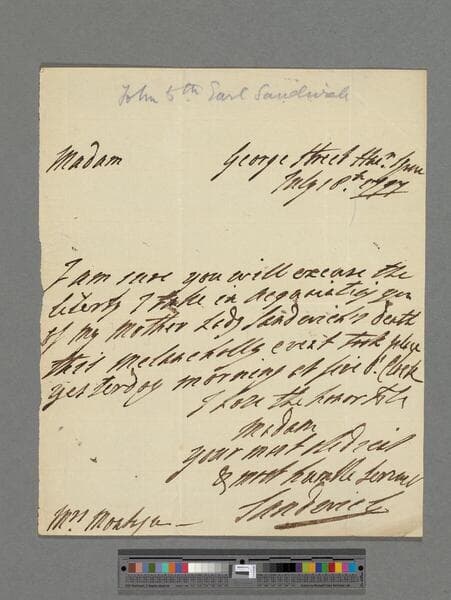 John 5th Earl Sandwich
Madam
George Street Han.r Squre
July 18.th 1797
I am sure you will excuse the
liberty I take in acquainting you
of my Mother Lady Sandwich's death
this melancholly event took place
yesterday morning at five O'Clock
I have the honor to be
Madam
your most obedient
& most humble servant
Sandwich
Mrs